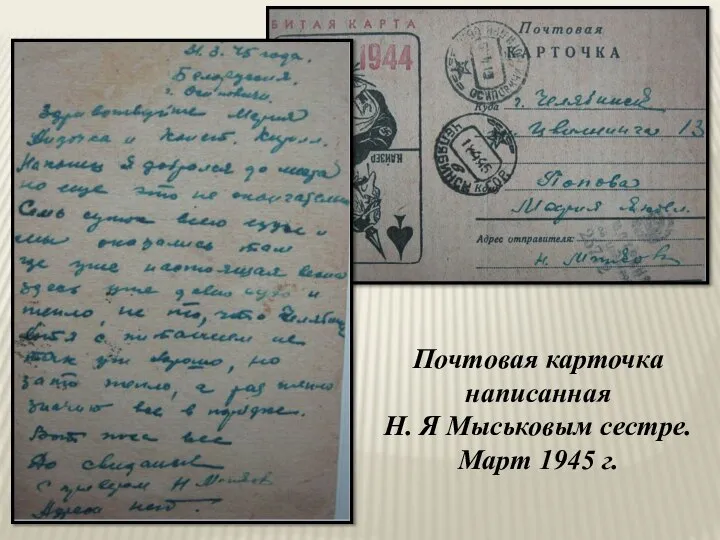 31.3.45 года.
Белоруссия.
г. Осиповичи.
Здравствуйте Мария
Лидочка и Конст. Кирилл.
Наконец я добрался до места
но еще это не окончательно
Семь суток всего езды и
мы оказались там
где уже настоящая весна
здесь уже давно сухо и
тепло, не то, что Челябинск
хотя с питанием не
так уж хорошо, но
зато тепло, а раз тепло
значит все в порядке.
Вот пока все
До свидания
С приветом Н Мыськов
Адреса нет.
БИТАЯ КАРТА
1944
КАЙЗЕР
Почтовая
КАРТОЧКА
Куда
г. Челябинск
Цвиллинга 13
ЧЕЛЯБИНСК
Кому
Попова
Мария Яковл.
Адрес отправителя:
Н. Мыськов
Почтовая карточка
написанная
Н. Я Мыськовым сестре.
Март 1945 г.